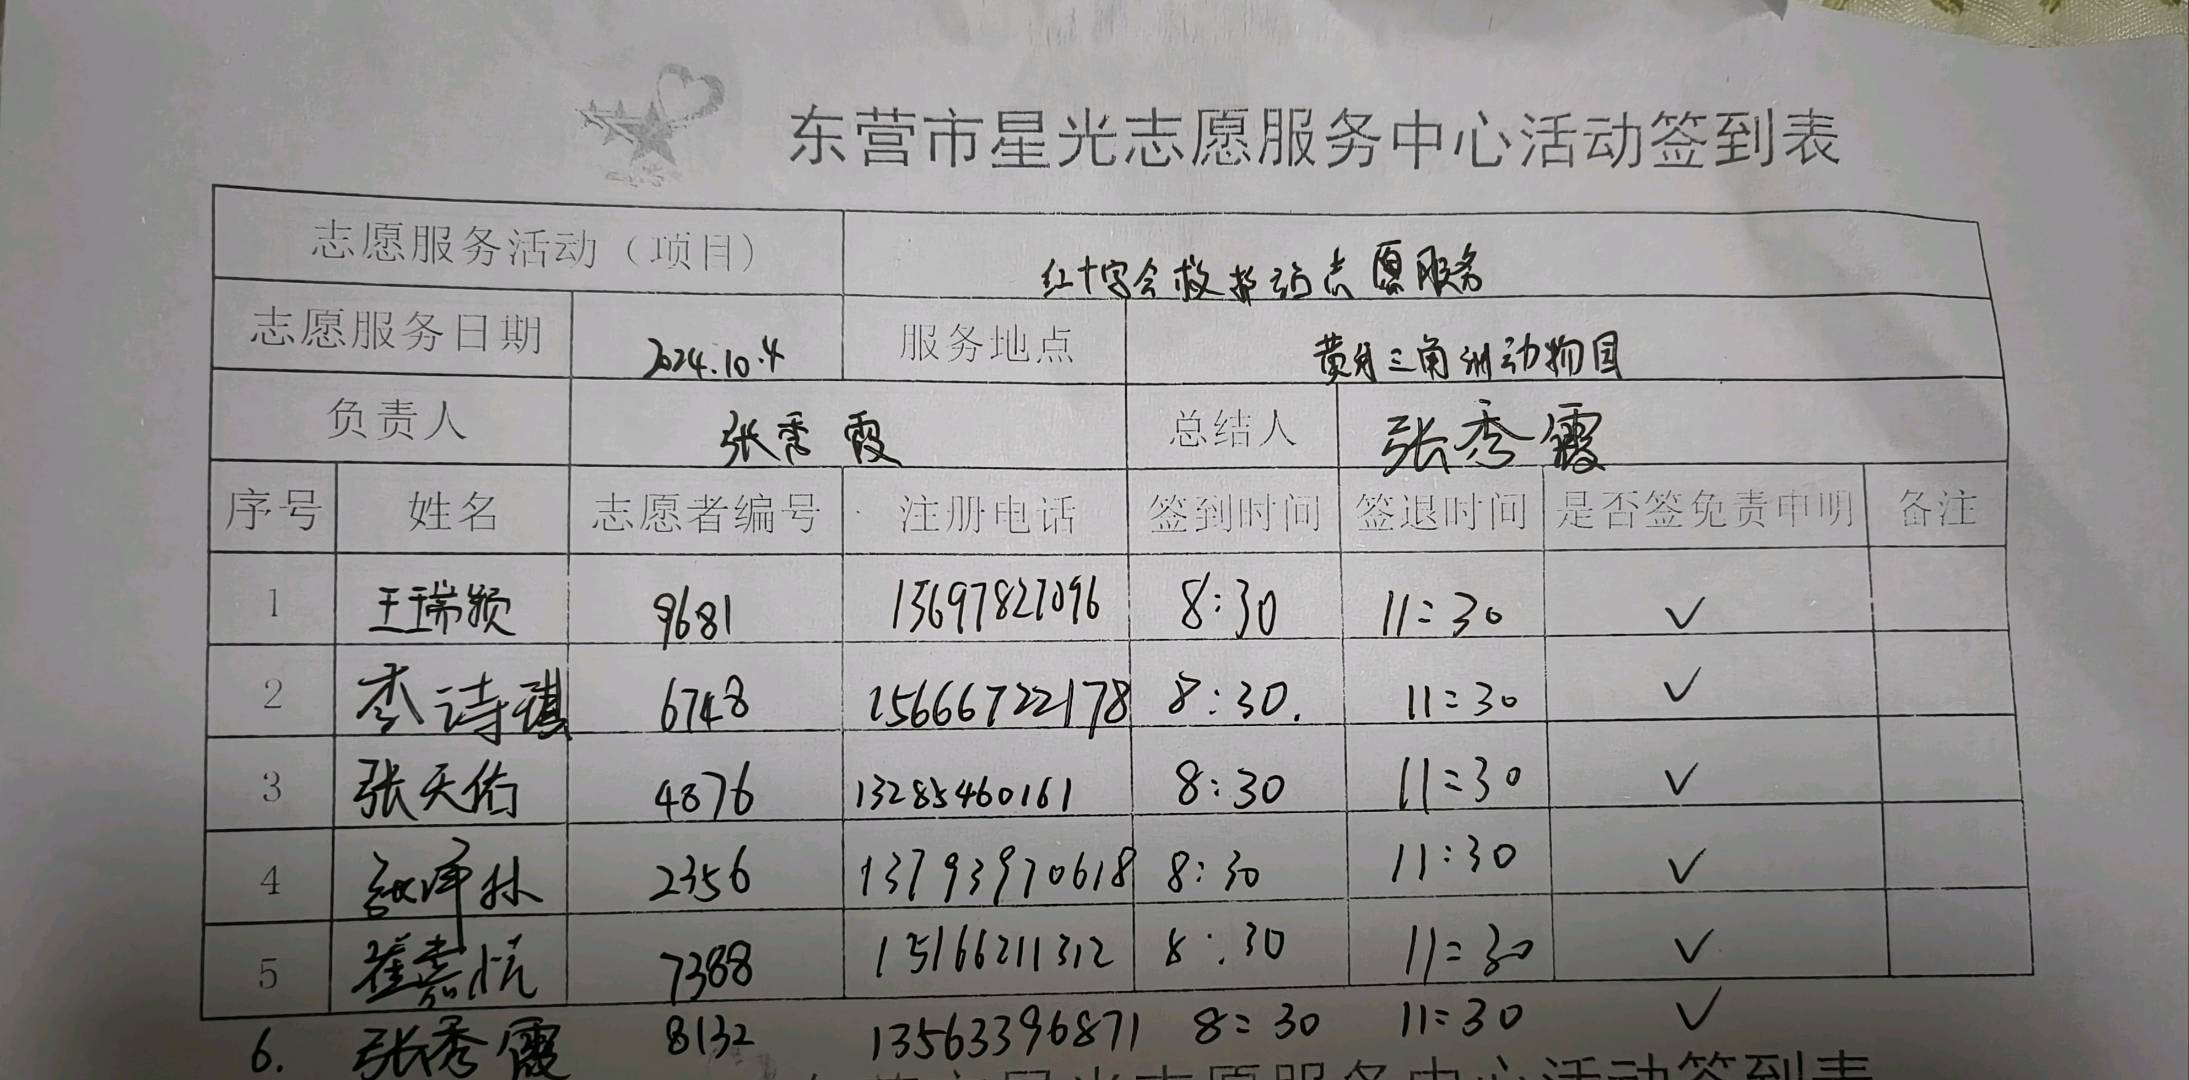 东营市星光志愿服务中心活动签到表
志愿服务活动（项目） 红十字会救护站志愿服务
志愿服务日期 2024.10.4 服务地点 黄河三角洲动物园
负责人 张秀霞 总结人 张秀霞
序号 姓名 志愿者编号 注册电话 签到时间 签退时间 是否签免责申明 备注
1 王瑞颖 9681 13697827096 8:30 11:30 ✓
2 李诗琪 6748 15666722178 8:30. 11:30 ✓
3 张天佑 4876 13285460161 8:30 11:30 ✓
4 2356 13793970618 8:30 11:30 ✓
5 崔嘉悦 7388 15166211312 8:30 11:30 ✓
6. 张秀霞 8132 13563396871 8:30 11:30 ✓
东营市星光志愿服务中心活动签到表